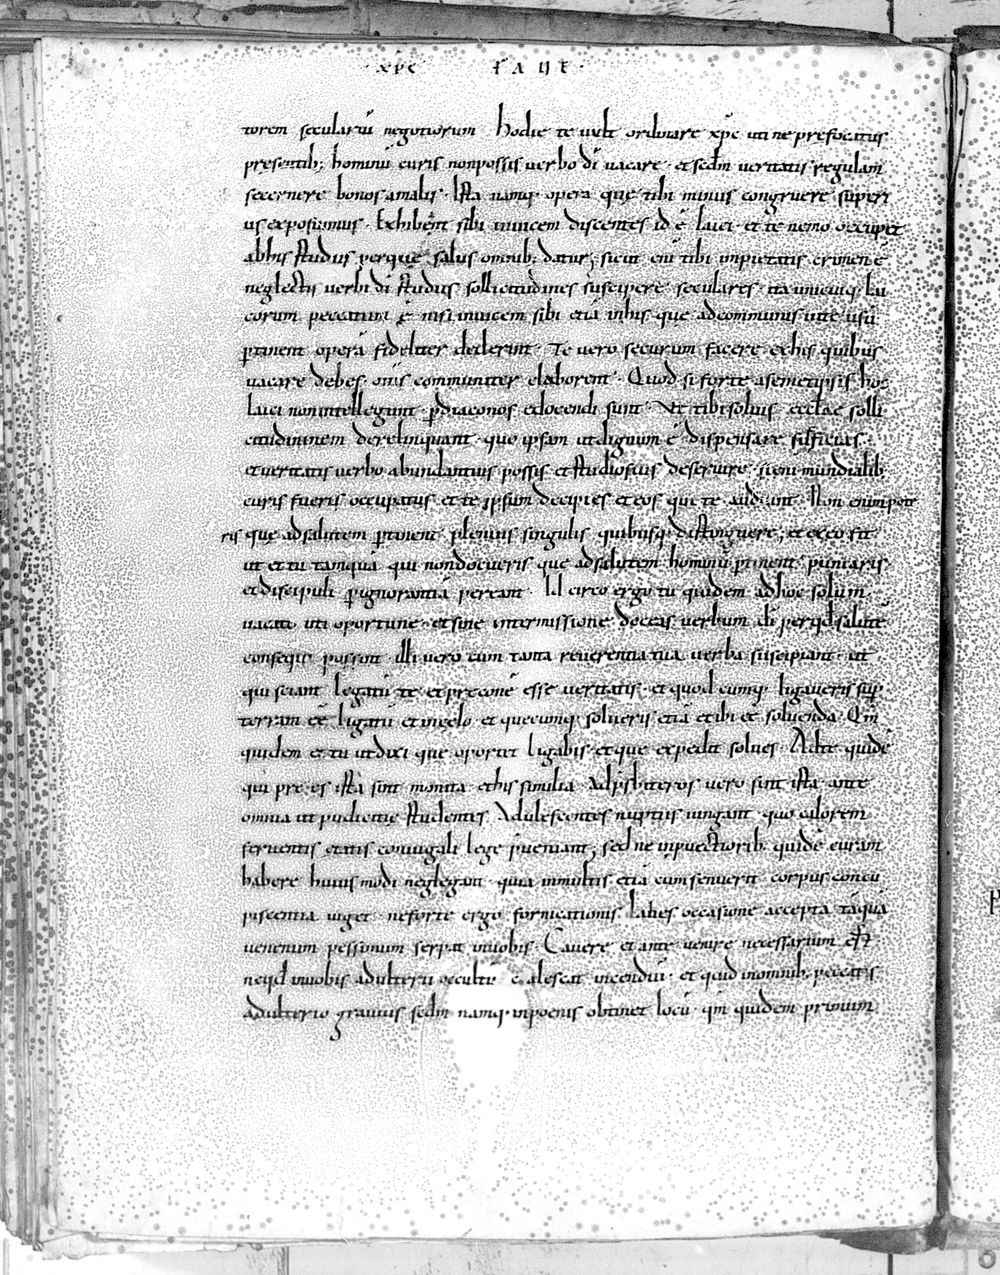 xp̄c
torem seculariū negotiorum Hodie te uult ordinare xp̄c uti ne prefocatus
presentib; hominū curis non possis uerbo dī uacare · et sedm̄ ueritatis regulam
secernere bonos a malis · Ista namq· opera que tibi minus congruere superi
us exposuimus · Exhibent sibi inuicem discentes id ē laici · et te nemo occupet
ab his studiis per que salus omnib; datur; sicut eni tibi impietatis crimen ē
neglectis uerbi dī studiis sollicitudines suscipere seculares · ita unicuiq· lai
corum peccatum ē nisi inuicem sibi etiā in his que ad communis uite usū
ptinent opera fideliter dederint · Te uero securum facere ex his quibus
uacare debes · om̄s communiter elaborent · Quod si forte a semetipsis hoc
laici non intellegunt · p diaconos edocendi sunt · Ut tibi solius ecclae solli
citudininem derelinquant · quo ipsam ut dignum ē dispensare sufficias ·
et ueritatis uerbo abundantius possis et studiosius deseruire · si eni mundialib;
curis fueris occupatus et te ipsum decipies et eos qui te audiunt · Non enim pote
ris que ad salutem ptinent plenius singulis quibusq· distinguere; et ex eo fit
ut et tu tamquā qui non docueris que ad salutem hominū ptinent puniaris
et discipuli p ignorantiā pereant · Id circo ergo tu quidem ad hoc solum
uacato uti oportune · et sine intermissione doceas uerbum dī per qd̄ salutē
consequi possint illi uero cum tanta reuerentia tua uerba suscipiant · ut
qui sciant legatū te et preconē esse ueritatis · et quod cumq· ligaueris sup
terram eē ligatū et in celo et quecumq· solueris etiā et ibi eē soluenda · Qm̄
quidem et tu ut dixi que oportet ligabis · et que expedit solues · Ad te quidē
qui pre es ista sint monita et his similia · Ad psbiteros uero sint ista ante
omnia ut pudicitię studentes Adulescentes nuptiis iungant · quo calorem
feruentis etatis coniugali lege pueniant; sed ne in puectiorib; quidē curam
habere huius modi neglegant · quia in multis etiā cum senuerit corpus concu
piscentia uiget · ne forte ergo fornicationis labes occasione accepta taqua
uenenum pessimum serpat in uobis · Cauere et ante uenire necessarium est ·
ne qd in uobis adulterii occultū calescat incendiū · et quid in omnib; peccatis
adulterio grauius sedm̄ namq· in poenis obtinet locū · qm̄ quidem primum